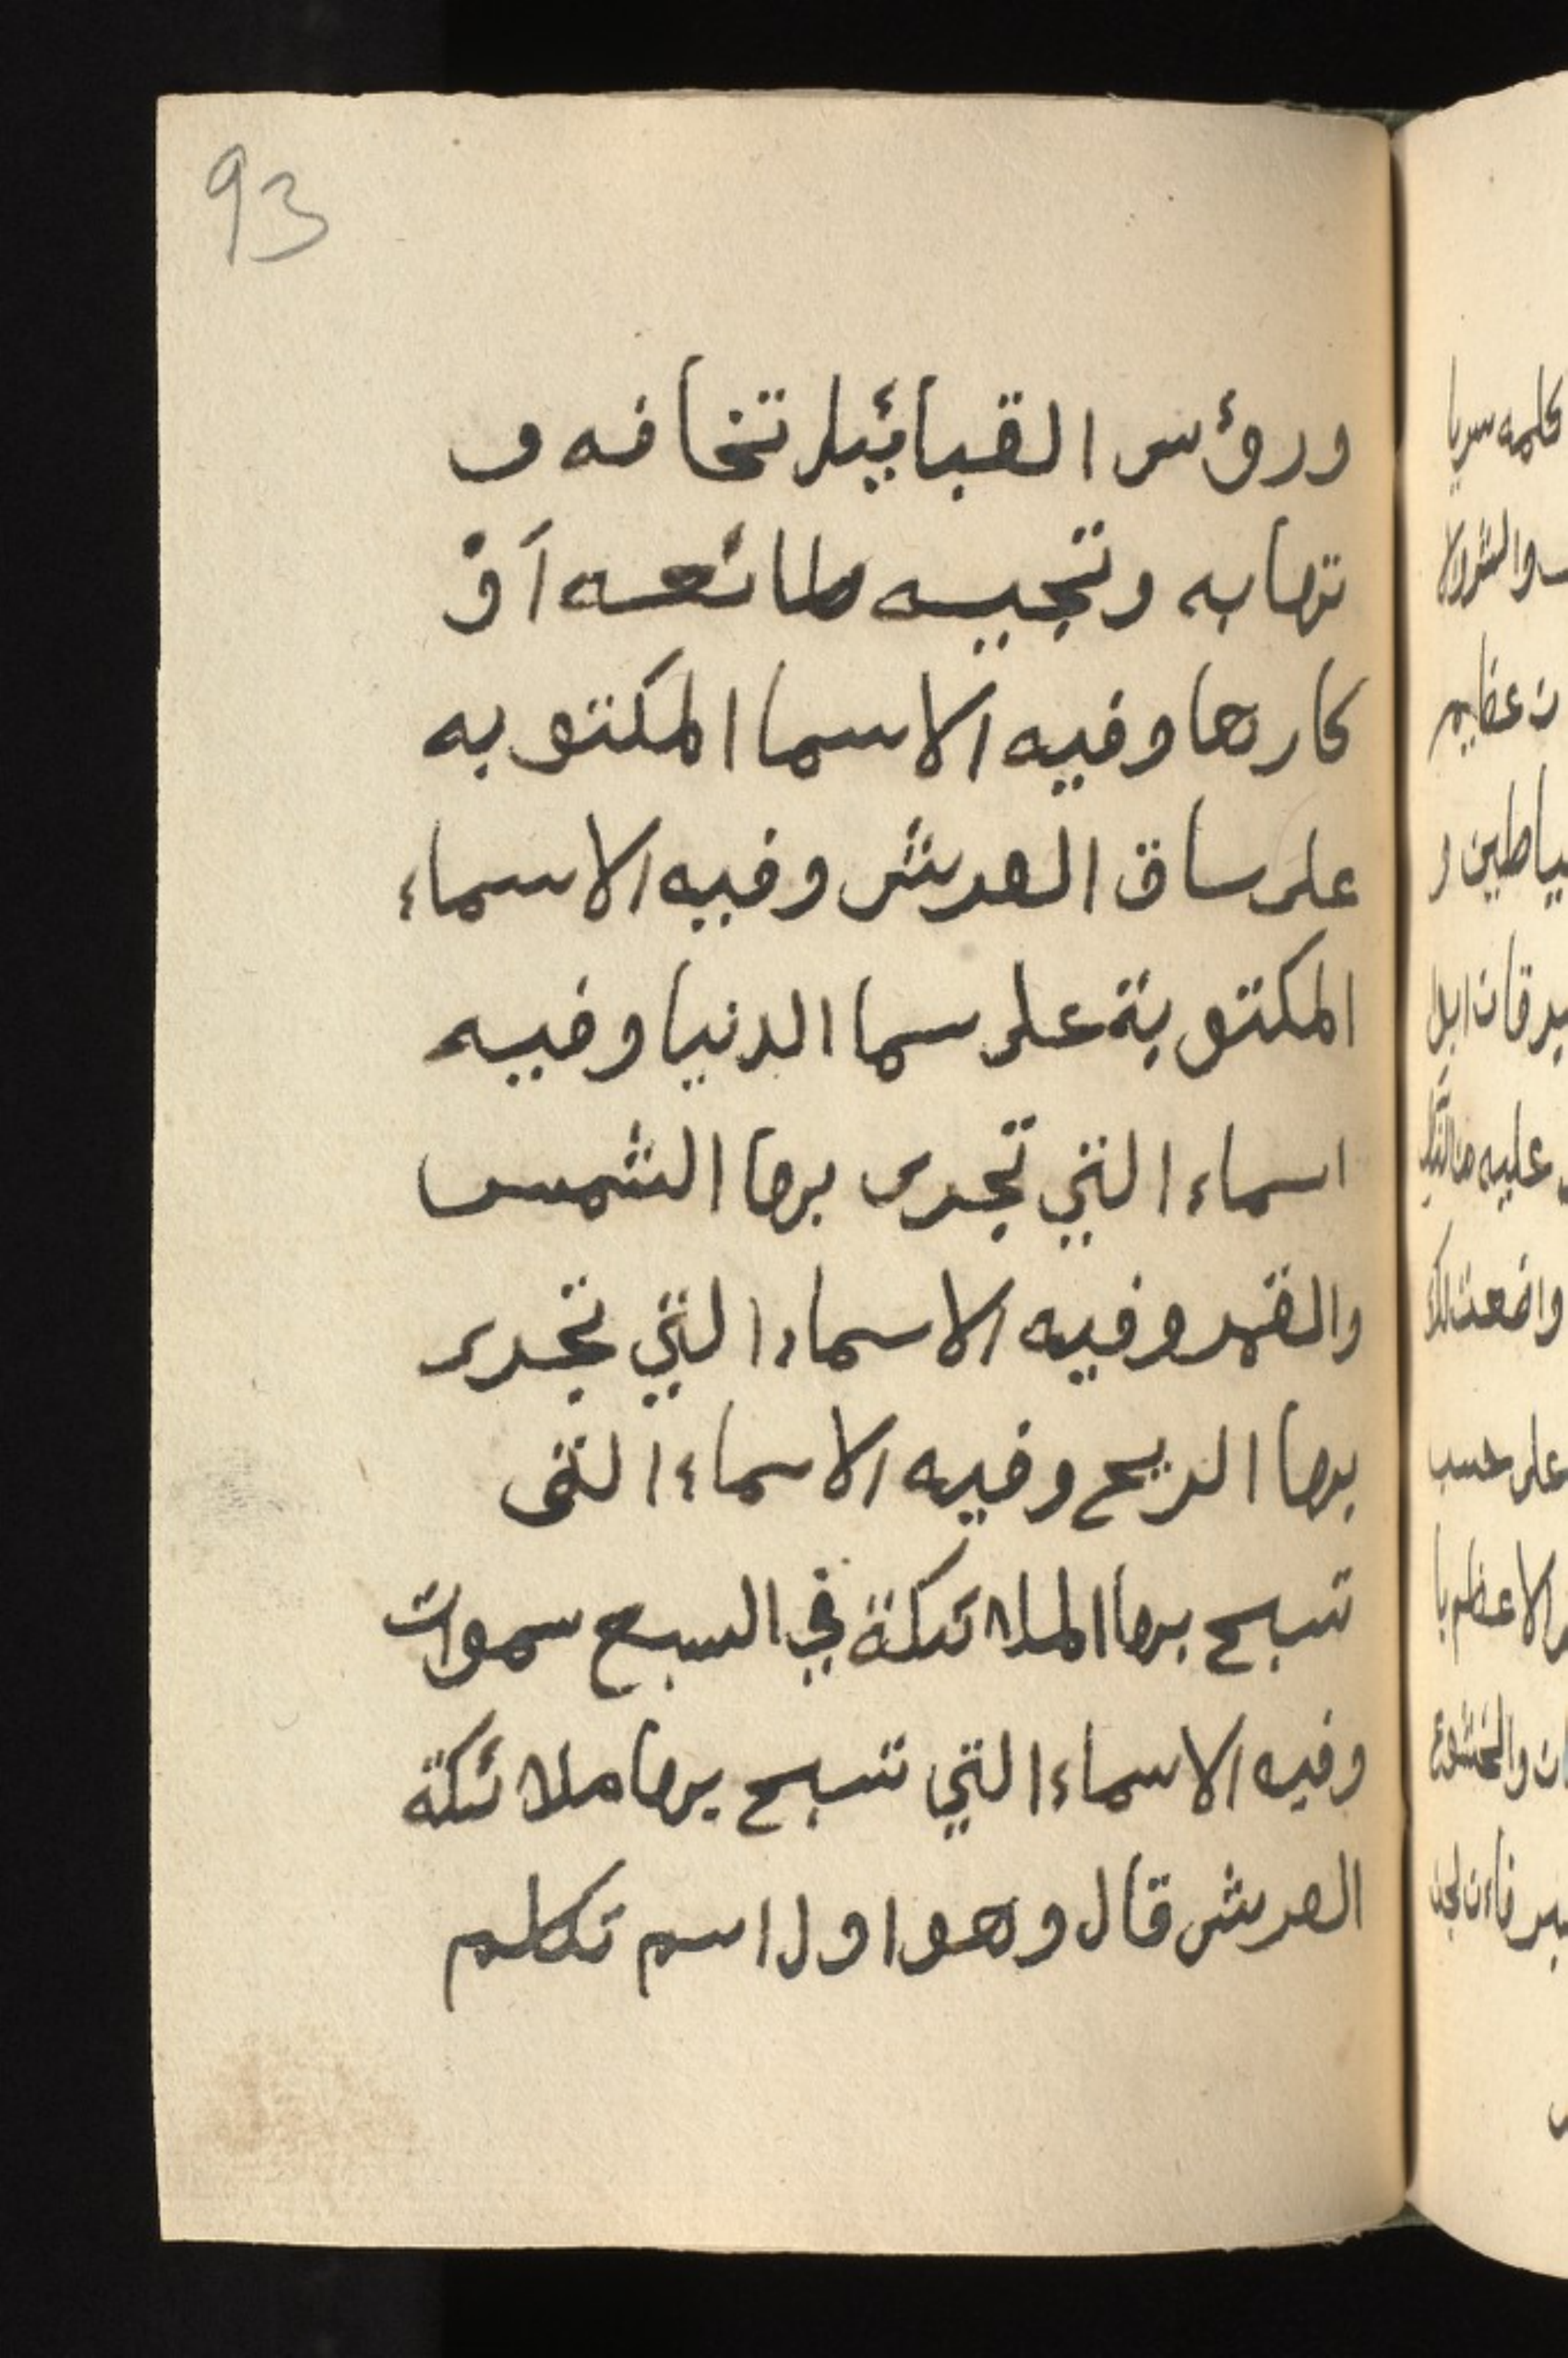 93
ورؤس القبائيل تخافه و
تهابه وتجيبه طائعه أو
كارها وفيه الاسما المكتوبه
على ساق العرش وفيه الاسماء
المكتوبة على سما الدنيا وفيه
اسماء التي تجرى بها الشمس
والقمر وفيه الاسماء التي تجرى
بها الريح وفيه الاسماء التى
تسبح بها الملائكة في السبع سموات
وفيه الاسماء التي تسبح بها ملائكة
العرش قال وهو اول اسم تكلم